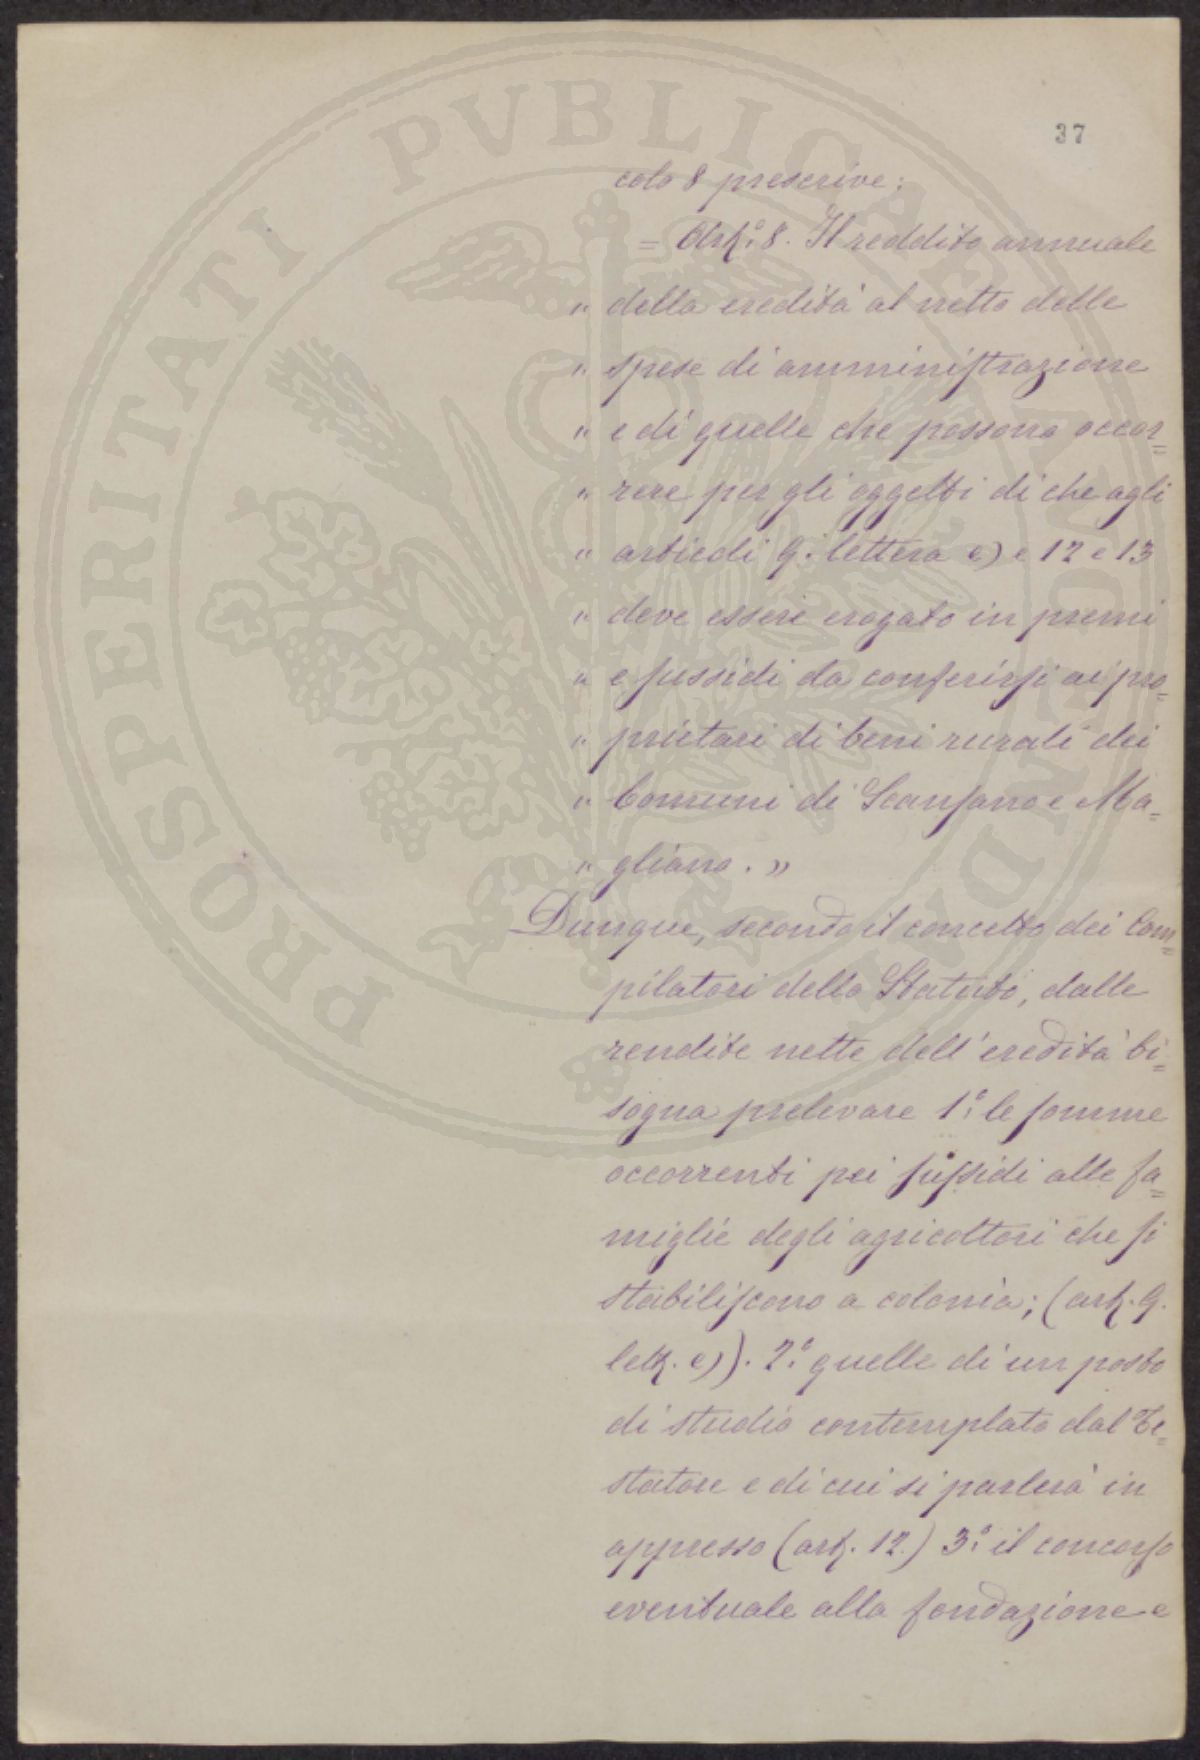 37
colo 8 prescrive:
= Art.° 8. Il reddito annuale
" della eredità al netto delle
" spese di amministrazione
" e di quelle che possono occor=
" rere per gli oggetti di che agli
" articoli 9. lettera e) e 12 e 13
" deve essere erogato in premi
" e sussidi da conferirsi ai pro=
" prietari di beni rurali dei
" Comuni di Scansano e Ma=
" gliano. "
Dunque, secondo il concetto dei Com=
pilatori dello Statuto, dalle
rendite nette dell'eredità bi=
sogna prelevare 1.° le somme
occorrenti pei sussidi alle fa=
miglie degli agricoltori che si
stabiliscono a colonia; (art. 9.
lett. e)). 2.° quelle di un posto
di studio contemplato dal Te=
statore e di cui si parlerà in
appresso (art. 12.) 3.° il concorso
eventuale alla fondazione e
PROSPERITATI PVBLICAE AVGENDAE